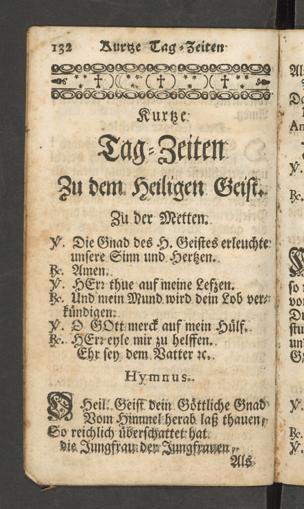 132 Kurtze Tag-Zeiten
Kurtze
Tag-Zeiten
Zu dem Heiligen Geist.
Zu der Metten.
℣. Die Gnad des H. Geistes erleuchte
unsere Sinn und Hertzen.
℟. Amen.
℣. HErr thue auf meine Lefzen.
℟. Und mein Mund wird dein Lob ver-
kündigen.
℣. O GOtt merck auf mein Hülf.
℟. HErr eyle mir zu helffen.
Ehr sey dem Vatter ꝛc.
Hymnus.
O Heil. Geist dein Göttliche Gnad
Vom Himmel herab laß thauen,
So reichlich überschattet hat
die Jungfrau der Jungfrauen,
Als